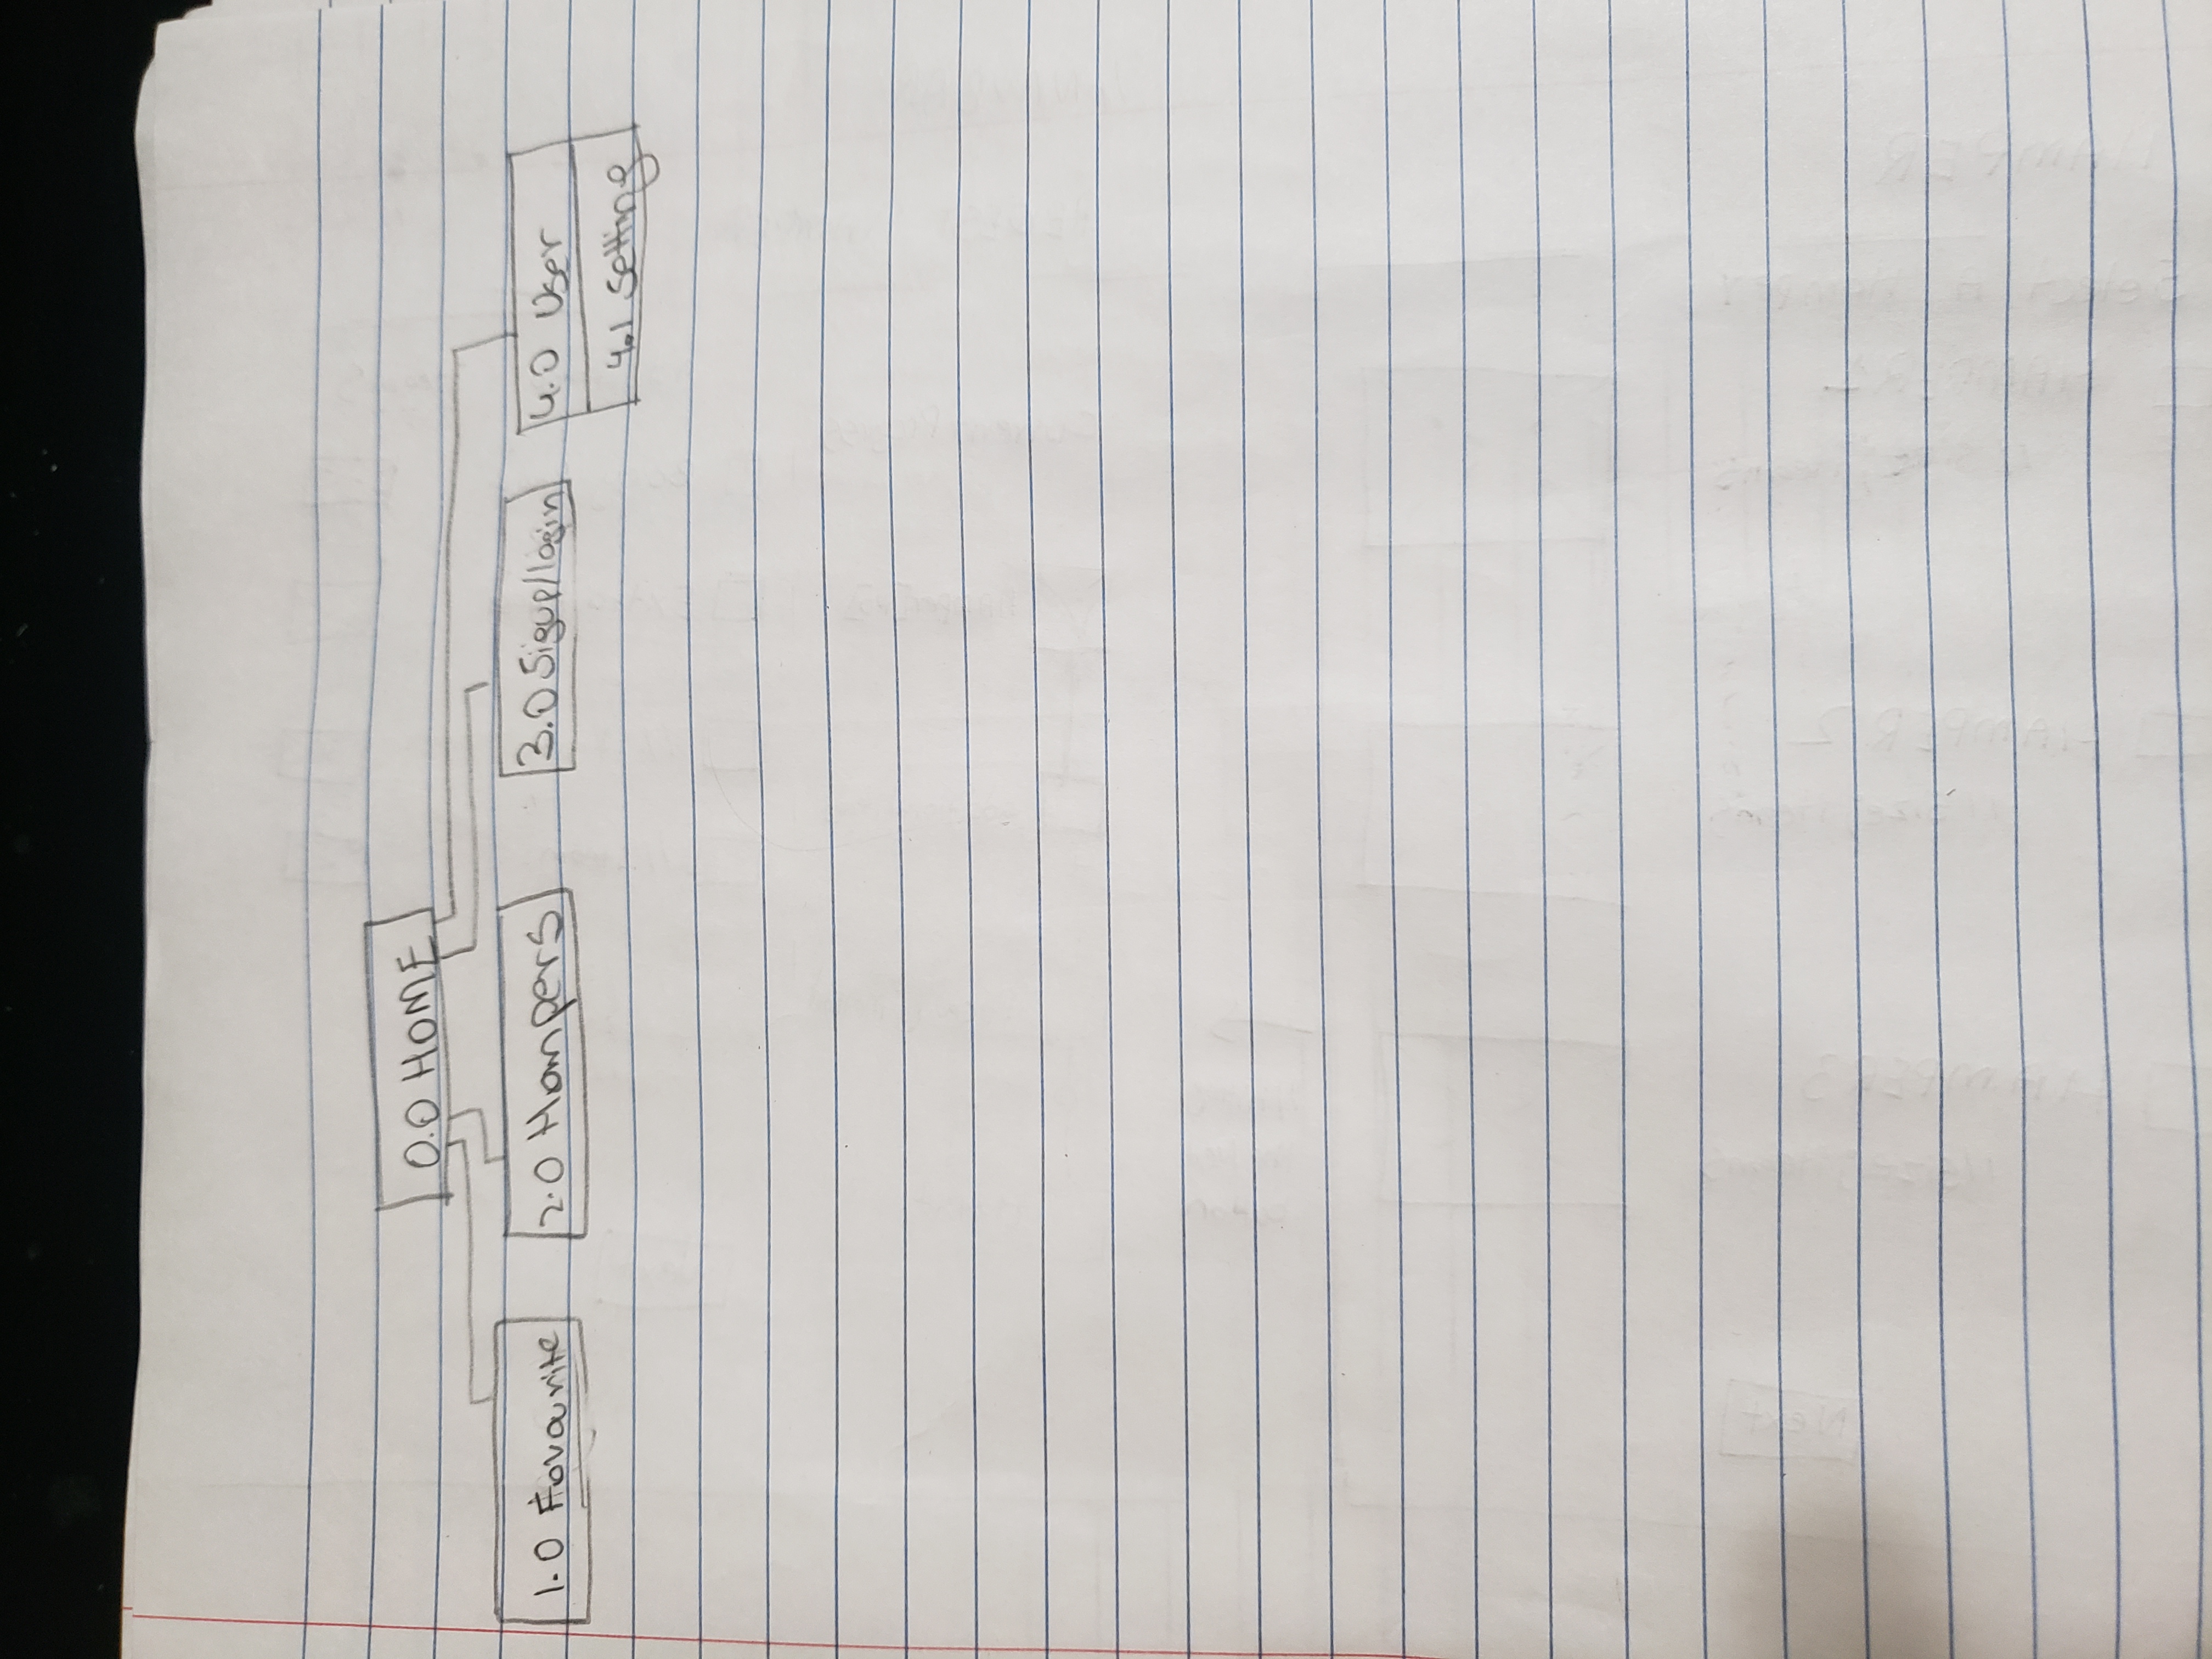 0.0 HOME
1.0 Favourite
2.0 Hampers
3.0 Sigup/login
4.0 User
4.1 Setting